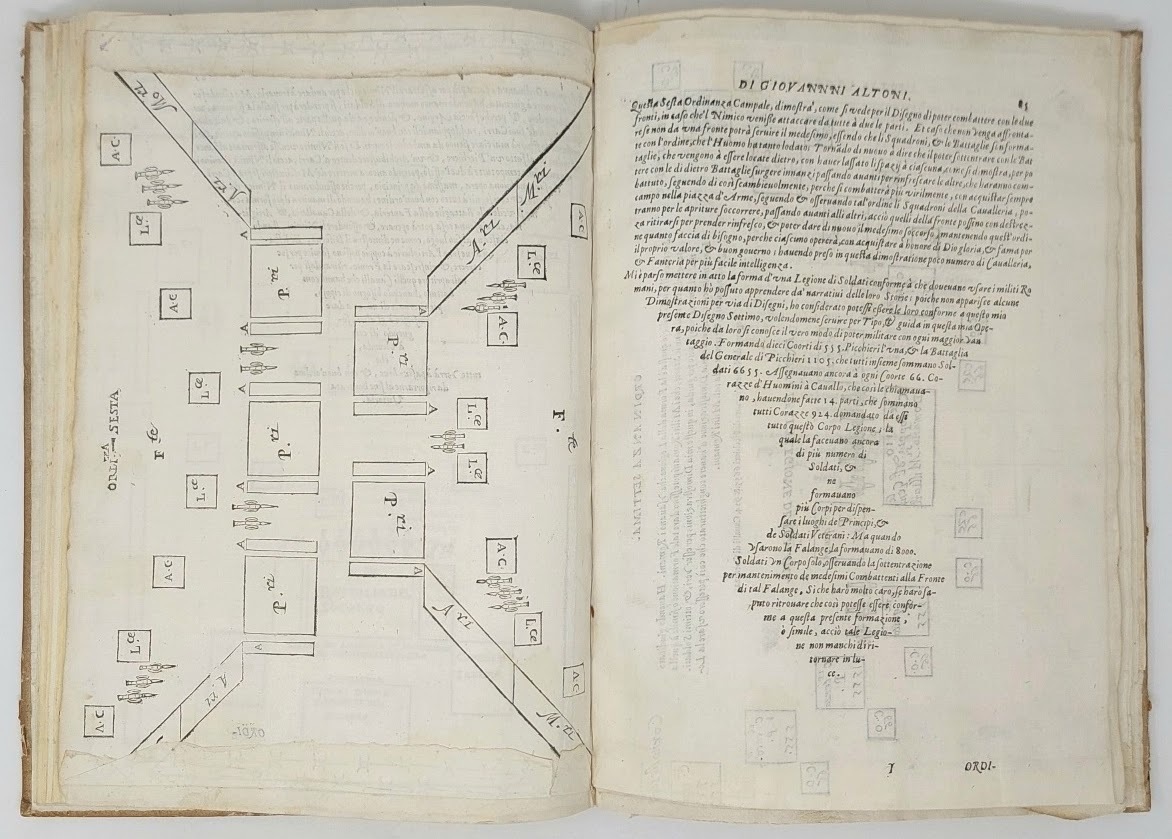 ORDI.ZA SESTA
F.te
F.te
Mo.ri
A.ri
A·C
L.ce
A
P.ri
A
A·C
L.ce
A
P.ri
A
L.ce
A·C
A
P.ri
A
L.ce
A·C
A.ri
M.ri
A.ri
A·C
L.ce
A·C
A
P.ri
A
L.ce
L.ce
A
P.ri
A·C
L.ce
A·C
A.ri
M.ri
ORDI-
DI GIOVANNNI ALTONI.
Questa Sesta Ordinanza Campale, dimostra, come si vede per il Disegno di poter combattere con le due
fronti, in caso che'l Nimico venisse attaccare da tutte à due le parti. Et caso che non venga affronta-
re se non da vna fronte potrà seruire il medesimo, essendo che li Squadroni, & le Battaglie si son forma-
te con l'ordine, che l'Huomo ha tanto lodato; Tornãdo di nuouo à dire che il poter sottentrare con le Bat
taglie, che vengono à essere locate dietro, con hauer lassato li spazij à ciascuna, come si dimostra, per po
tere con le di dietro Battaglie surgere innanzi passando auanti per rinfrescare le altre, che haranno com-
battuto, seguendo di così scambieuolmente, perche si combatterà più virilmente, con acquistar sempre
campo nella piazza d'Arme, seguendo & osseruando tal'ordine li Squadroni della Caualleria, po-
tranno per le apriture soccorrere, passando auanti alli altri, acciò quelli della fronte possino con destrez-
za ritirarsi per prender rinfresco, & poter dare di nuouo il medesimo soccorso, mantenendo quest'ordi-
ne quanto faccia di bisogno, perche ciascuno opererà, con acquistare à honore di Dio gloria, & fama per
il proprio valore, & buon gouerno; hauendo preso in questa dimostratione poco numero di Caualleria,
& Fanteria per più facile intelligenza.
Mi è parso mettere in atto la forma d'vna Legione di Soldati conforme à che doueuano vsare i militi Ro
mani, per quanto hò possuto apprendere da' narratiui delle loro Storie; poiche non apparisce alcune
Dimostrazioni per via di Disegni, ho considerato potessi essere le loro conforme a questo mio
presente Disegno Settimo, volendomene seruire per Tipo, & guida in questa mia Ope-
ra, poiche da loro si conosce il vero modo di poter militare con ogni maggior van
taggio. Formando dieci Coorti di 555. Picchieri l'vna, & la Battaglia
del Generale di Picchieri 1105. che tutti insieme sommano Sol-
dati 6655. Assegnauano ancora à ogni Coorte 66. Co-
razze d'Huomini à Cauallo, che così le chiamaua-
no, hauendone fatte 14. parti, che sommano
tutti Corazze 924. domandato da essi
tutto questo Corpo Legione, la
quale la faceuano ancora
di più numero di
Soldati, &
ne
formauano
più Corpi per dispen-
sare i luoghi de' Principi, &
de Soldati Veterani: Ma quando
vsarono la Falange, la formauano di 8000.
Soldati in vn Corpo solo, osseruando la sottentrazione
per mantenimento de medesimi Combattenti alla Fronte
di tal Falange, Siche harò molto caro, se harò sa-
puto ritrouare che così potesse essere confor-
me a questa presente formazione,
ò simile, acciò tale Legio-
ne non manchi di ri-
tornare in lu-
ce.
I
ORDI-